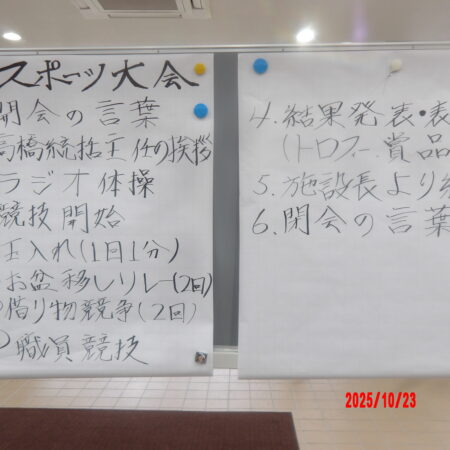 スポーツ大会
開会の言葉
高橋統括主任の挨拶
ラジオ体操
競技開始
玉入れ(1回1分)
お盆移しリレー(2回)
借り物競争(2回)
職員競技
4.結果発表・表
(トロフィー.賞品
5.施設長より
6.閉会の言葉
2025/10/23